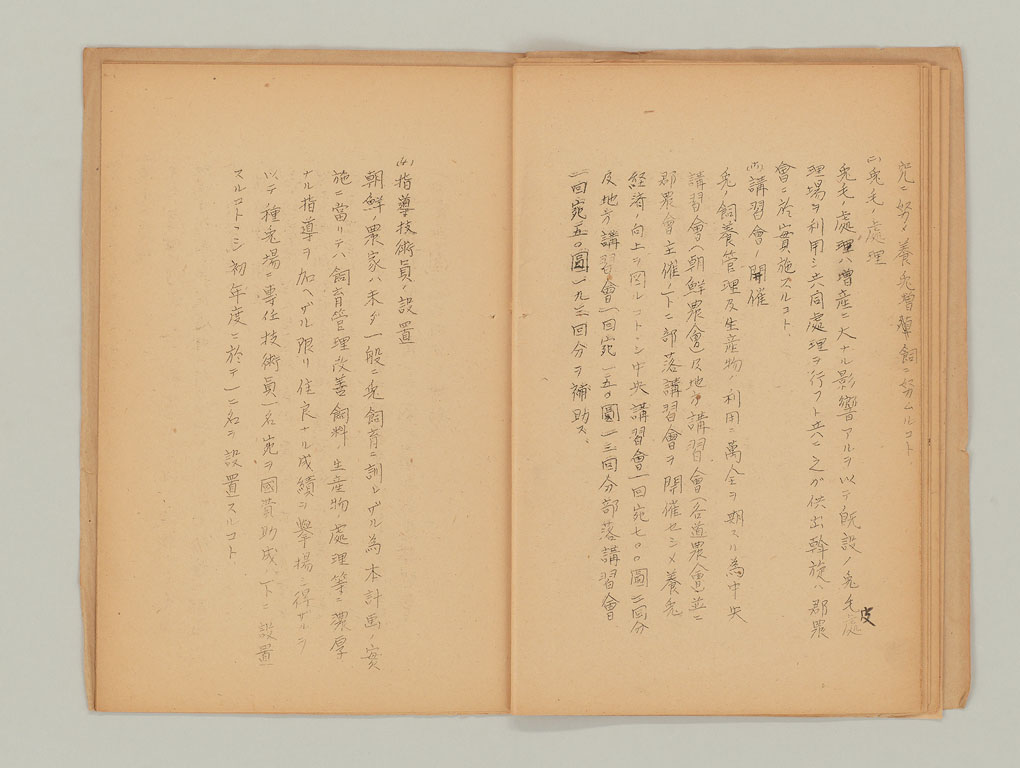 究ニ努メ養兎普遍飼ニ努ムルコト
(二)兎毛ノ處理
兎毛ノ處理ハ増産ニ大ナル影響アルヲ以テ既設ノ兎毛皮處
理場ヲ利用シ共同處理ヲ行フト共ニ之ガ供出斡旋ハ郡農
會ニ於實施スルコト、
講習會ノ開催
兎ノ飼養管理及生産物ノ利用ニ萬全ヲ期スル為中央
講習會(朝鮮農會)及地方講習會(各道農會)並ニ
郡農會主催ノ下ニ部落講習會ヲ開催セシメ養兎
経済ノ向上ヲ図ルコトヽシ中央講習會一回宛七〇〇圓二回分
及地方講習會一回宛一五〇圓一三回分部落講習會
一回宛五〇圓一九三回分ヲ補助ス、
指導技術員ノ設置
朝鮮ノ農家ハ未ダ一般ニ兎飼育ニ訓レザル為本計画ノ實
施ニ當リテハ飼育管理改善飼料、生産物ノ處理等ニ濃厚
ナル指導ヲ加ヘザル限リ佳良ナル成績ヲ擧揚シ得ザルヲ
以テ種兎場ニ専任技術員一名宛ヲ國費助成ノ下ニ設置
スルコトヽシ初年度ニ於テ一一名ヲ設置スルコト